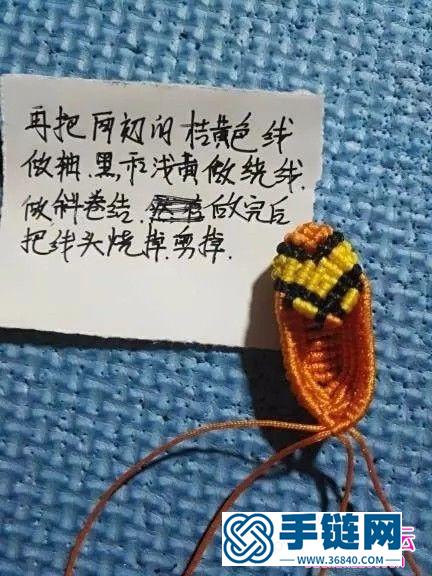 再把两边的桔黄色线
做轴.黑,和浅黄做绕线.
做斜卷结.做完后
把线头烧掉.剪掉.
手链网
www.36840.com
坛